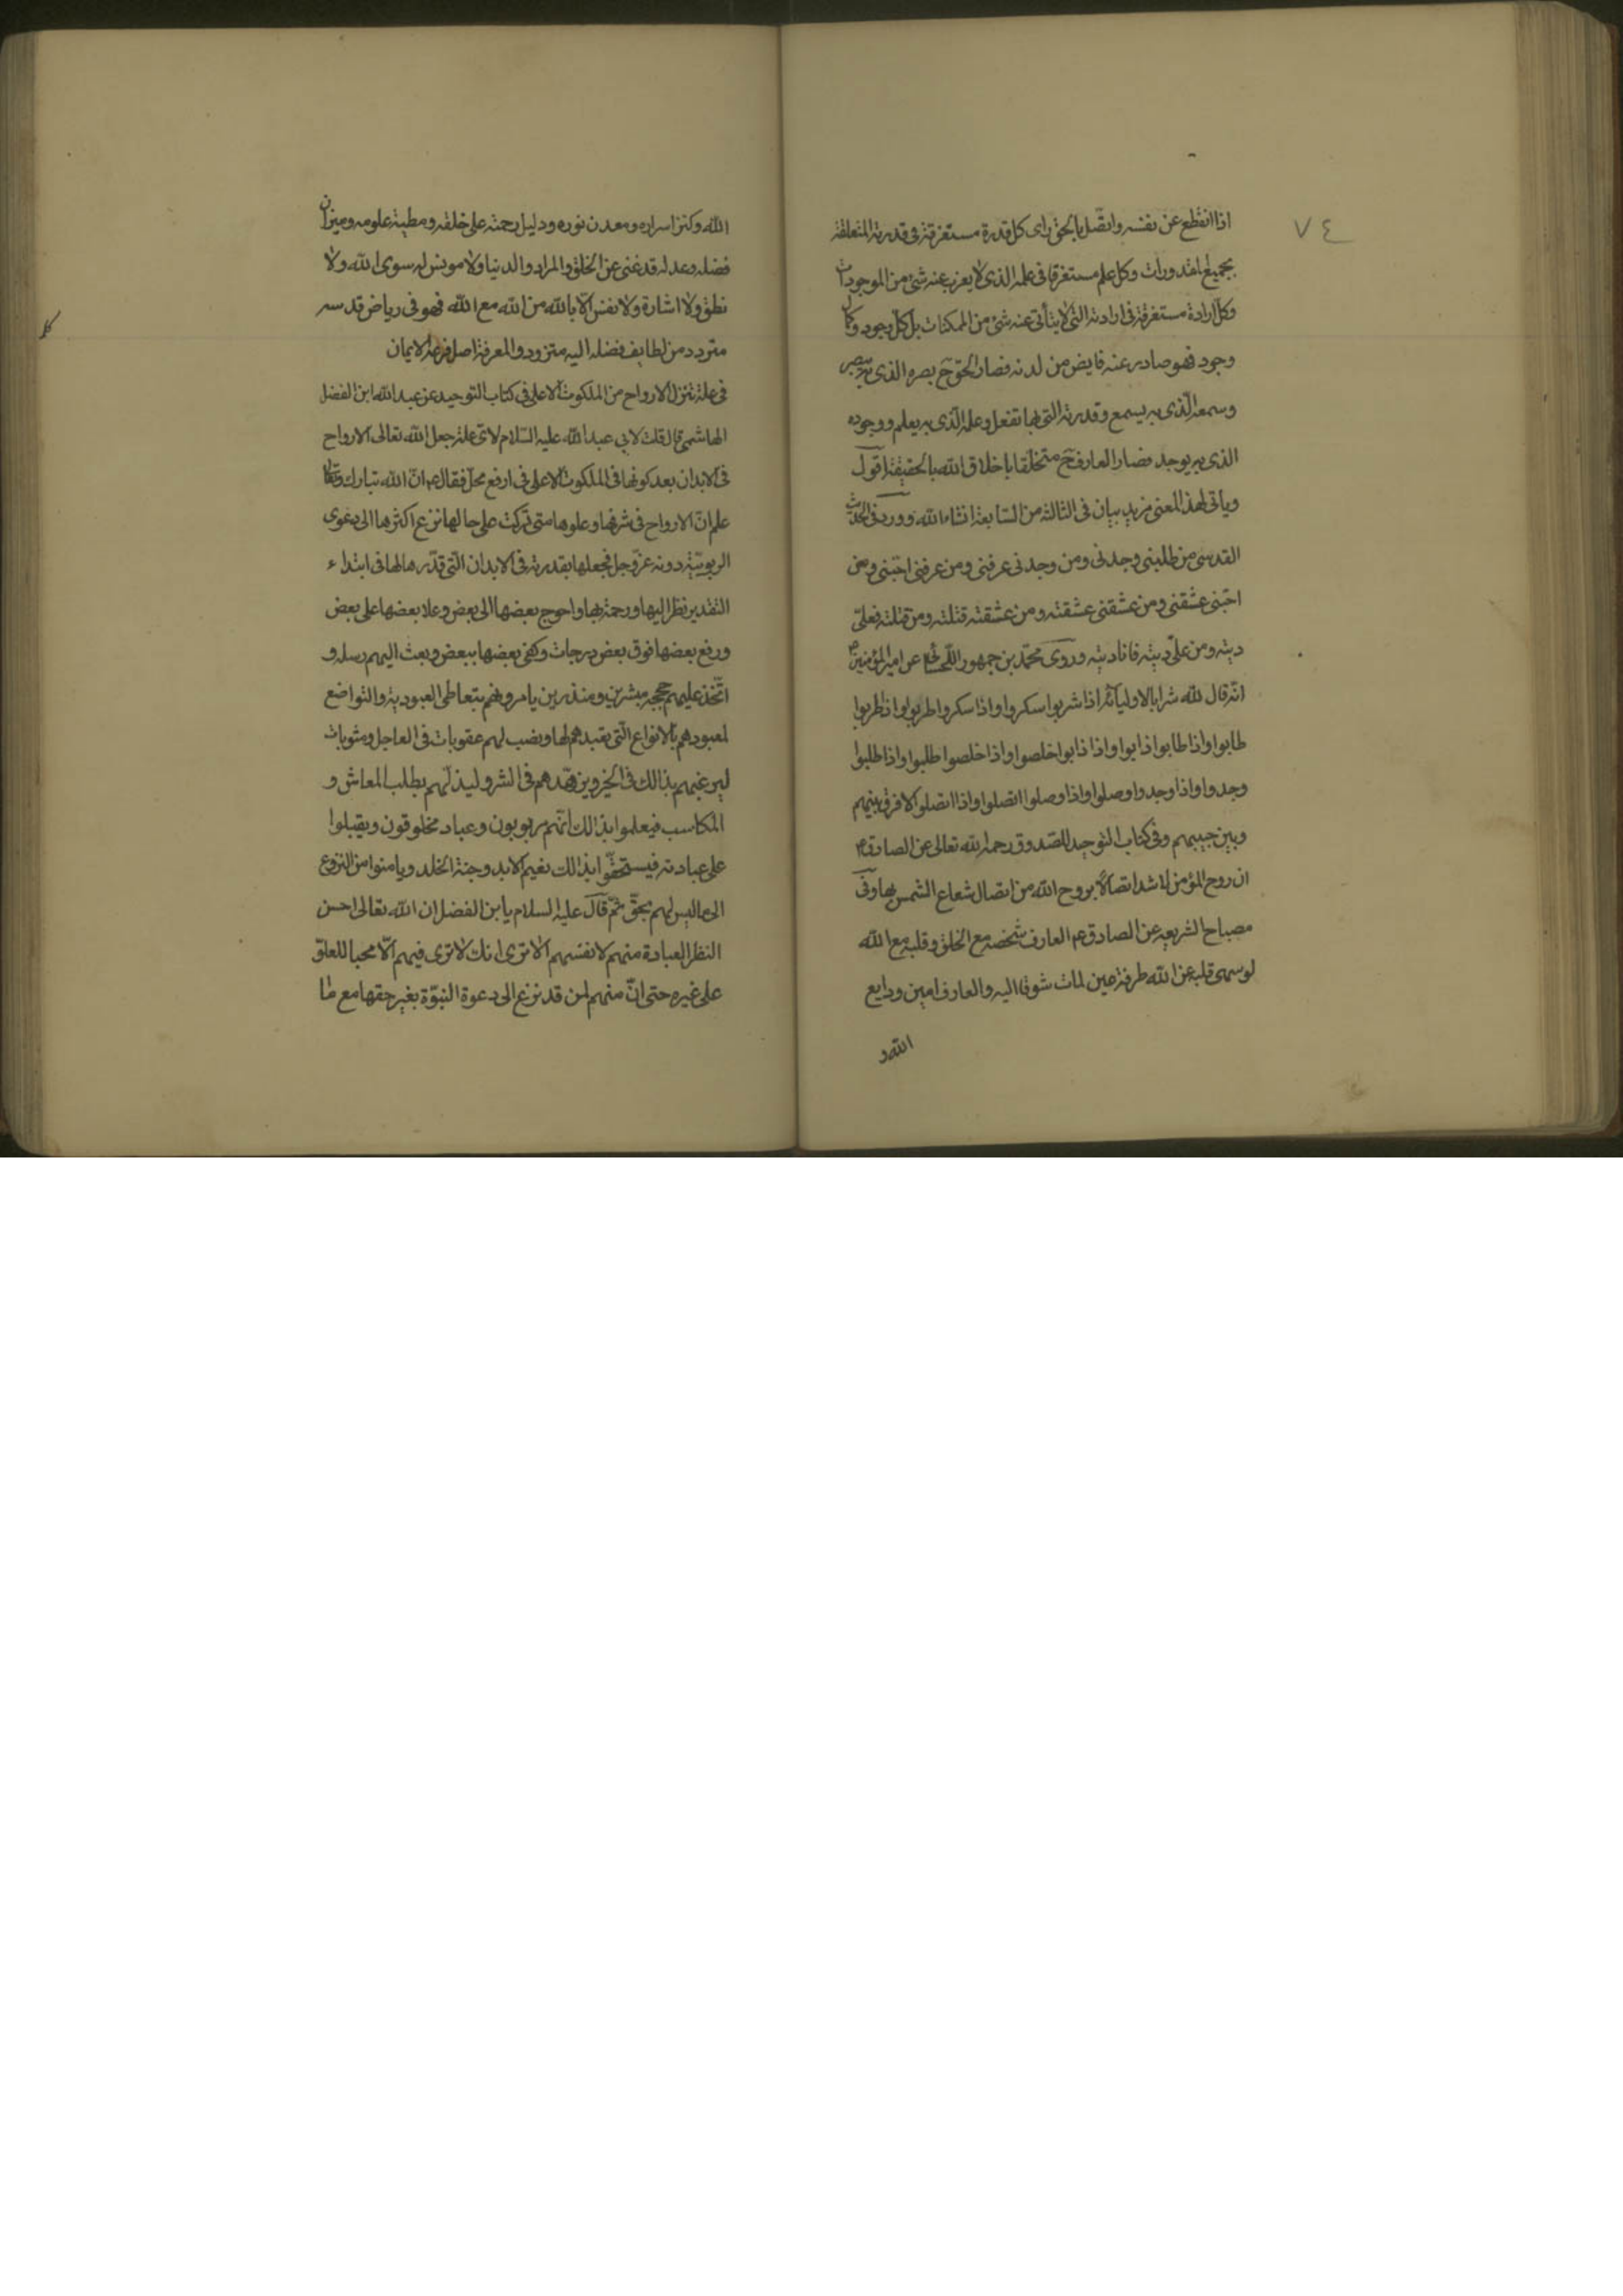 ٧٤
اذا انقطع عن نفسه واتّصل بالحق رای کل قدرة مستغرقة فی قدرته المتعلقة
بجمیع المقدورات وکل علم مستغرقا فی علمه الذی لا یعزب عنه شئ من الموجودات
وکل ارادة مستغرقة فی ارادته التی لا یتأتی عنه شئ من الممکنات بل کل وجود وکمال
وجود فهو صادر عنه فایض من لدنه فصار الحق ح بصره الذی به یبصر
وسمعه الّذی به یسمع وقدرته التی بها تفعل وعلمه الّذی به یعلم ووجوده
الذی به یوجد فصار العارف ح متخلقا باخلاق الله بالحقیقة اقول
ویأتی لهذا المعنی مزید بیان فی الثالثة من السّابعة انشاء الله وورد فی الحدیث
القدسی من طلبنی وجدنی ومن وجدنی عرفنی ومن عرفنی احبّنی ومن
احبّنی عشقنی ومن عشقنی عشقته ومن عشقته قتلته ومن قتلته فعلیّ
دیته ومن علیّ دیته فانا دیته وروی محمّد بن جمهور اللحسائی عن امیر المؤمنین ص
انّه قال لله شرابا لاولیائه اذا شربوا سکروا واذا سکروا طربوا واذا طربوا
طابوا واذا طابوا ذابوا واذا ذابوا خلصوا واذا خلصوا طلبوا واذا طلبوا
وجدوا واذا وجدوا وصلوا واذا وصلوا اتصلوا واذا اتصلوا لا فرق بینهم
وبین حبیبهم وفی کتاب التوحید للصّدوق رحمه الله تعالی عن الصادق ع
ان روح المؤمن لاشد اتصالاً بروح الله من اتصال شعاع الشمس بها وفی
مصباح الشریعه عن الصادق ع العارف شخصه مع الخلق وقلبه مع الله
لو سهی قلبه عن الله طرفة عین لمات شوقا الیه والعارف امین ودایع
الله و
الله وکنز اسراره ومعدن نوره ودلیل رحمته علی خلقه ومطیة علومه ومیزان
فضله وعدله قد غنی عن الخلق والمراد والدنیا ولا مونس له سوی الله ولا
نطق ولا اشارة ولا نفس الّا بالله من الله مع الله فهو فی ریاض قدسه
متردد من لطایف فضله الیه متزود والمعرفة اصل فرعه الایمان
فی علة تنزل الارواح من الملکوت الاعلی فی کتاب التوحید عن عبد الله ابن الفضل
الهاشمی قال قلت لابی عبد الله علیه السّلام لایّ علة جعل الله تعالی الارواح
فی الابدان بعد کونها فی الملکوت الاعلی فی ارفع محل فقال ع انّ الله تبارک وتعالی
علم انّ الارواح فی شرفها وعلوها متی ترکت علی حالها نزع اکثرها الی دعوی
الربوبیّة دونه عزّ وجل فجعلها بقدرته فی الابدان الّتی قدّرها لها فی ابتداء
التقدیر نظرا الیها ورحمة بها واحوج بعضها الی بعض وعلا بعضها علی بعض
ورفع بعضها فوق بعض درجات وکفی بعضها ببعض وبعث الیهم رسله و
اتّخذ علیهم حججه مبشرین ومنذرین یامرونهم بتعاطی العبودیة والتواضع
لمعبودهم بالانواع الّتی تعبدهم لها ونصب لهم عقوبات فی العاجل ومثوبات
لیرغبهم بذالک فی الخیر ویزهّدهم فی الشر ولیذلّهم بطلب المعاش و
المکاسب فیعلموا بذالک انّهم مربوبون وعباد مخلوقون ویقبلوا
علی عبادته فیستحقّوا بذالک نعیم الابد وجنة الخلد ویامنوا من النزوع
الی ما لیس لهم بحقّ ثمّ قال علیه السلام یا بن الفضل ان الله تعالی احسن
النظر لعباده منهم لانفسهم الا تری انک لا تری فیهم الّا محبا للعلوّ
علی غیره حتی انّ منهم لمن قد نزع الی دعوة النبوّة بغیر حقها مع ما